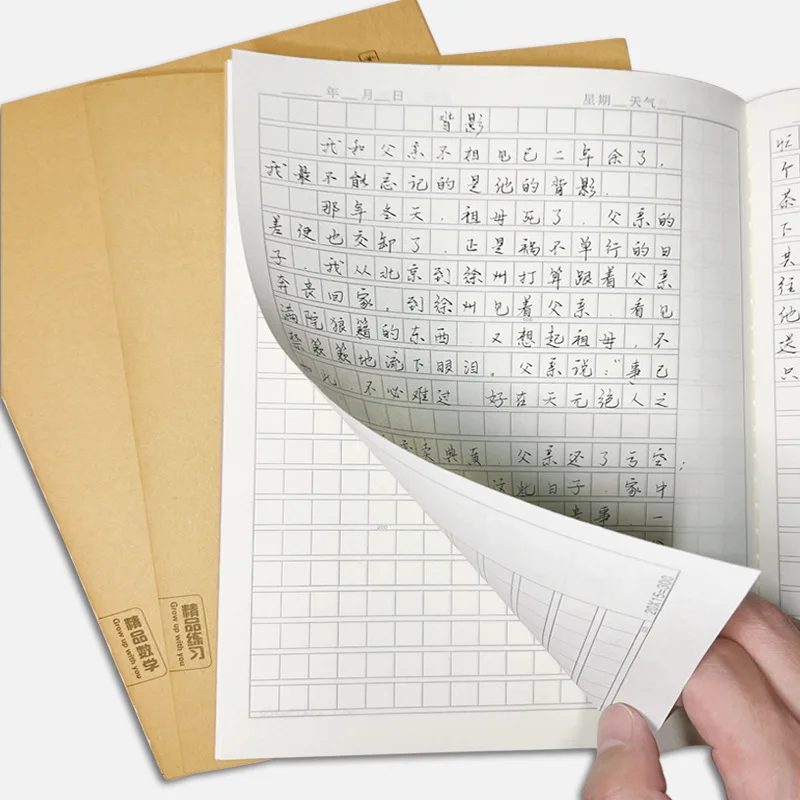 年 月 日 星期 天气
背影
我和父亲不相见已二年余了,
我最不能忘记的是他的背影.
那年冬天,祖母死了.父亲的
差使也交卸了.正是祸不单行的日
子.我从北京到徐州打算跟着父亲
奔丧回家,到徐州见着父亲.看见
满院狼籍的东西.又想起祖母,不
禁簌簌地流下眼泪。父亲说:"事已
如此.不必难过 好在天无绝人之
变卖典质.父亲还了亏空;
这些日子.家中
丧事.一
20X15=300
旺
个
茶
下
其
往
他
送
只
精品
Grow up with you
精品练习
Grow up with you